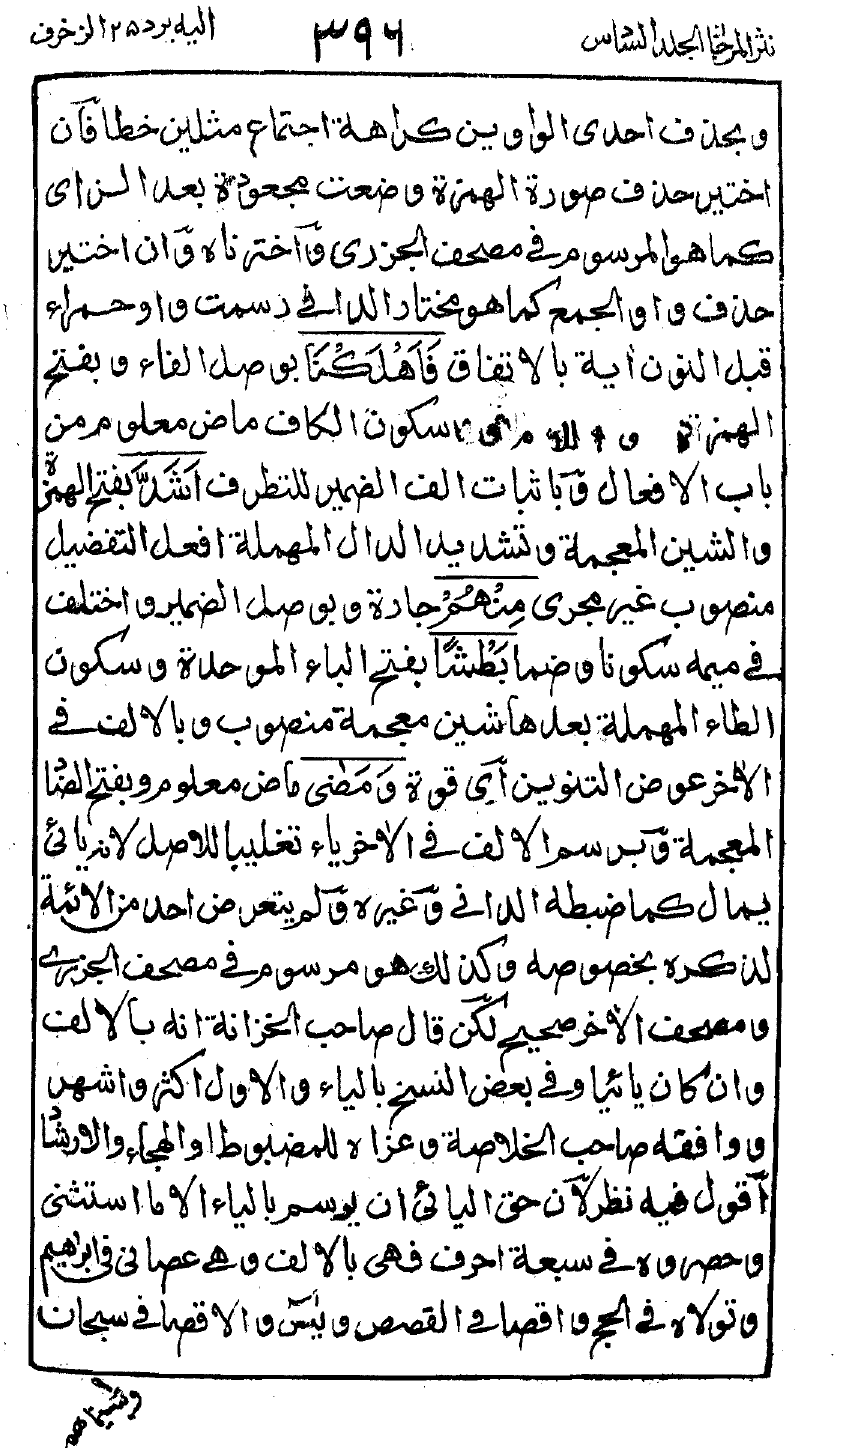 نثر المرجان المجلد السادس ٣٩٦ اليه يرد ٢٥ الزخرف
و بحذف احدى الواوين كراهة اجتماع مثلين خطا فان
اختير حذف صورة الهمزة وضعت مجعودة بعد الزاى
كما هو المرسوم فى مصحف الجزرى و اخترناه و ان اختير
حذف واو الجمع كما هو مختار الدانى رسمت واو حمراء
قبل النون اية بالاتفاق فَاَهْلَكْنَا بوصل الفاء و بفتح
الهمزة و سكون الكاف ماض معلوم من
باب الافعال و باثبات الف الضمير للتطرف اَشَدَّ بفتح الهمزة
والشين المعجمة و تشديد الدال المهملة افعل التفضيل
منصوب غير مجرى مِنْهُمْ جارة و بوصل الضمير واختلف
فى ميمه سكونا وضما بَطْشًا بفتح الباء الموحدة و سكون
الطاء المهملة بعدها شين معجمة منصوب و بالالف فى
الاخر عوض التنوين اى قوة وَمَضٰى ماض معلوم وبفتح الضاد
المعجمة و برسم الالف فى الاخر ياء تغليبا للاصل لانه يائى
يمال كما ضبطه الدانى و غيره و لم يتعرض احد من الائمة
لذكره بخصوصه وكذلك هو مرسوم فى مصحف الجزرى
و مصحف الاخر صحيح لكن قال صاحب الخزانة انه بالالف
وان كان يائيا وفى بعض النسخ بالياء والاول اكثر واشهر
و وافقه صاحب الخلاصة وعزاه للمضبوط والهجاء والارشاد
اقول فيه نظر لان حق اليائى ان يرسم بالياء الا ما استثنى
وحصروه فى سبعة احرف فهى بالالف وهى عصانى فى ابراهيم
و تولاه فى الحج واقصا فى القصص ويٰسٓ والاقصا فى سبحان
وسيماهم